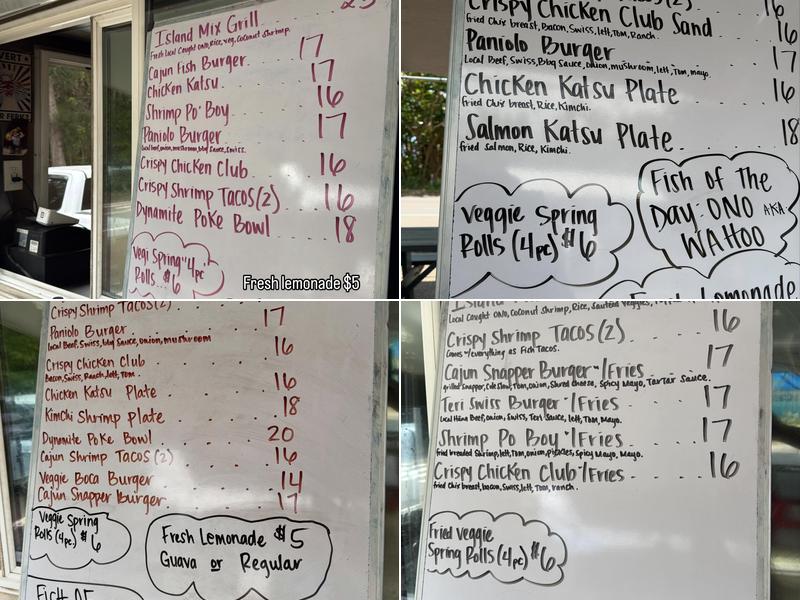 Island Mix Grill
Fresh local Caught ONO, Rice, veg, Coconut Shrimp. 17
Cajun Fish Burger 17
Chicken Katsu 16
Shrimp Po' Boy 17
Paniolo Burger
local beef, onion, mushroom, bbq Sauce, Swiss.
Crispy Chicken Club 16
Crispy Shrimp Tacos (2) 16
Dynamite Poke Bowl 18
Vegi Spring 4pc
Rolls $6
Fresh lemonade $5
Crispy Chicken Club Sand 16
fried Chix breast, Bacon, Swiss, lett, Tom, Ranch.
Paniolo Burger 17
Local Beef, Swiss, Bbq Sauce, onion, mushroom, lett, Tom, mayo.
Chicken Katsu Plate 16
fried Chix breast, Rice, Kimchi.
Salmon Katsu Plate 18
fried Salmon, Rice, Kimchi.
Veggie Spring
Rolls (4pc) $6
Fish of The
Day: ONO AKA
WAHOO
Lemonade
Crispy Shrimp Tacos (2) 17
Paniolo Burger
Local Beef, Swiss, bbq Sauce, onion, mushroom 16
Crispy Chicken Club
Bacon, Swiss, Ranch, lett, Tom. 16
Chicken Katsu Plate
Kimchi Shrimp Plate 18
Dynomite Poke Bowl 20
Cajun Shrimp Tacos (2) 16
Veggie Boca Burger 14
Cajun Snapper Burger 17
Veggie Spring
Rolls (4pc) $6
Fresh Lemonade $5
Guava or Regular
Fish OF
Island
Local Caught ONO, Coconut Shrimp, Rice, Sauteed Veggies,
Crispy Shrimp Tacos (2) 16
Comes w/everything as Fish Tacos.
Cajun Snapper Burger w/Fries 17
grilled Snapper, Cole Slaw, Tom, onion, Shred Cheese, Spicy Mayo, TarTar Sauce.
Teri Swiss Burger w/Fries 17
Local Hana Beef, onion, Swiss, Teri Sauce, lett, Tom, Mayo.
Shrimp Po Boy w/Fries 17
fried breaded Shrimp, lett, Tom, onion, pickles, Spicy Mayo, Mayo.
Crispy Chicken Club w/Fries 16
fried Chix breast, bacon, Swiss, lett, Tom, ranch.
Fried Veggie
Spring Rolls (4pc) $6